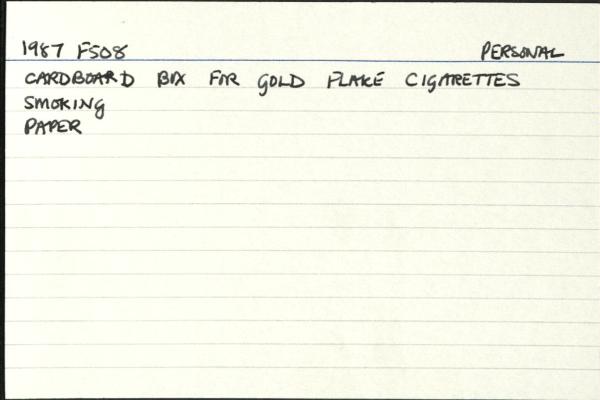 1987 F508 PERSONAL
CARDBOARD BOX FOR GOLD FLAKE CIGARETTES
SMOKING
PAPER